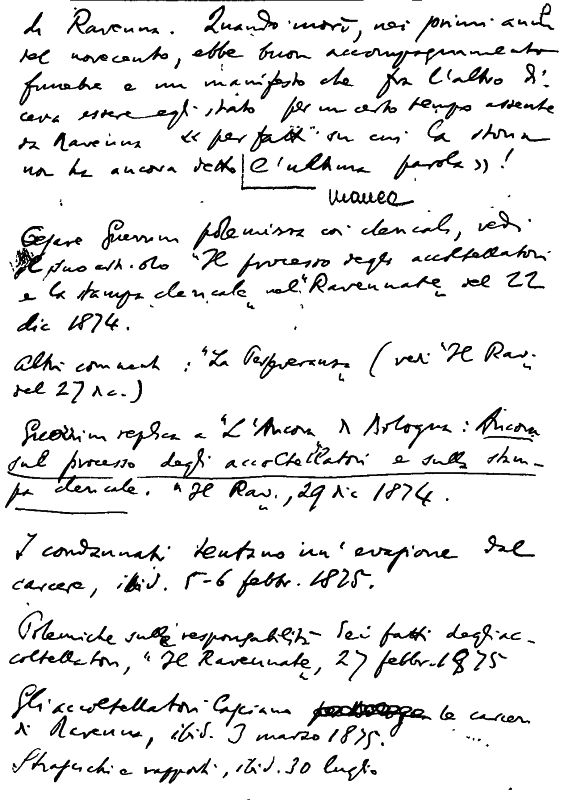 di Ravenna. Quando morì, nei primi anni
del novecento, ebbe buon accompagnamento
funebre e un manifesto che fra l'altro di-
ceva essere egli stato per un certo tempo assente
da Ravenna « per fatti" su cui la storia
non ha ancora detto l'ultima parola» !
manca
Cesare Guerrini polemizza coi clericali, vedi
il suo "Il processo degli accoltellatori
e la stampa clericale" nel "Ravennate" del 22
dic 1874.
Altri commenti : "La Perseveranza" (vedi "Il Rav."
del 27 dic.)
Guerrini replica a "L'Ancora" di Bologna : Ancora
sul processo degli accoltellatori e sulla stam-
pa clericale. "Il Rav.", 29 dic 1874.
I condannati tentano un'evasione dal
carcere, ibid. 5-6 febbr. 1875.
Polemiche sulle responsabilità dei fatti degli ac-
coltellatori, "Il Ravennate", 27 febbr. 1875
Gli accoltellatori lasciano le carceri
di Ravenna, ibid. 3 marzo 1875. ...
Strascichi e rapporti, ibid. 30 luglio